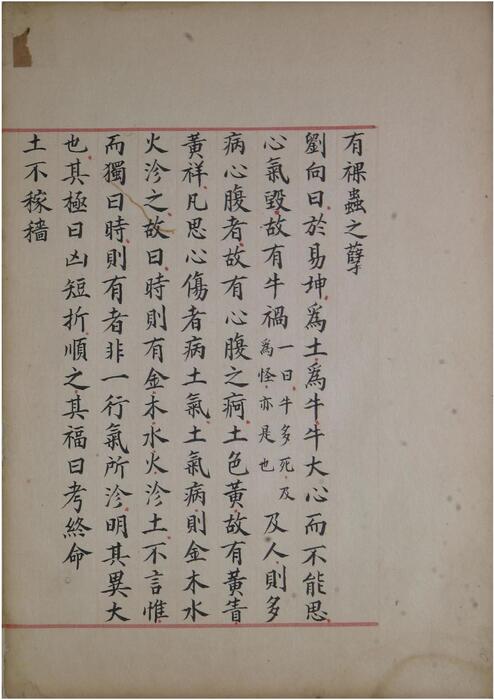 有裸蟲之孽
劉向曰於易坤為土為牛牛大心而不能思
心氣毀故有牛禍一曰牛多死及為怪亦是也及人則多
病心腹者故有心腹之痾土色黃故有黃眚
黃祥凡思心傷者病土氣土氣病則金木水
火沴之故曰時則有金木水火沴土不言惟
而獨曰時則有者非一行氣所沴明其異大
也其極曰凶短折順之其福曰考終命
土不稼穡